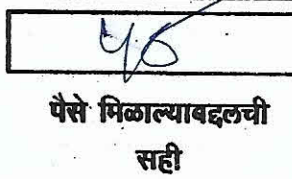 पैसे मिळाल्याबद्दलची
सही